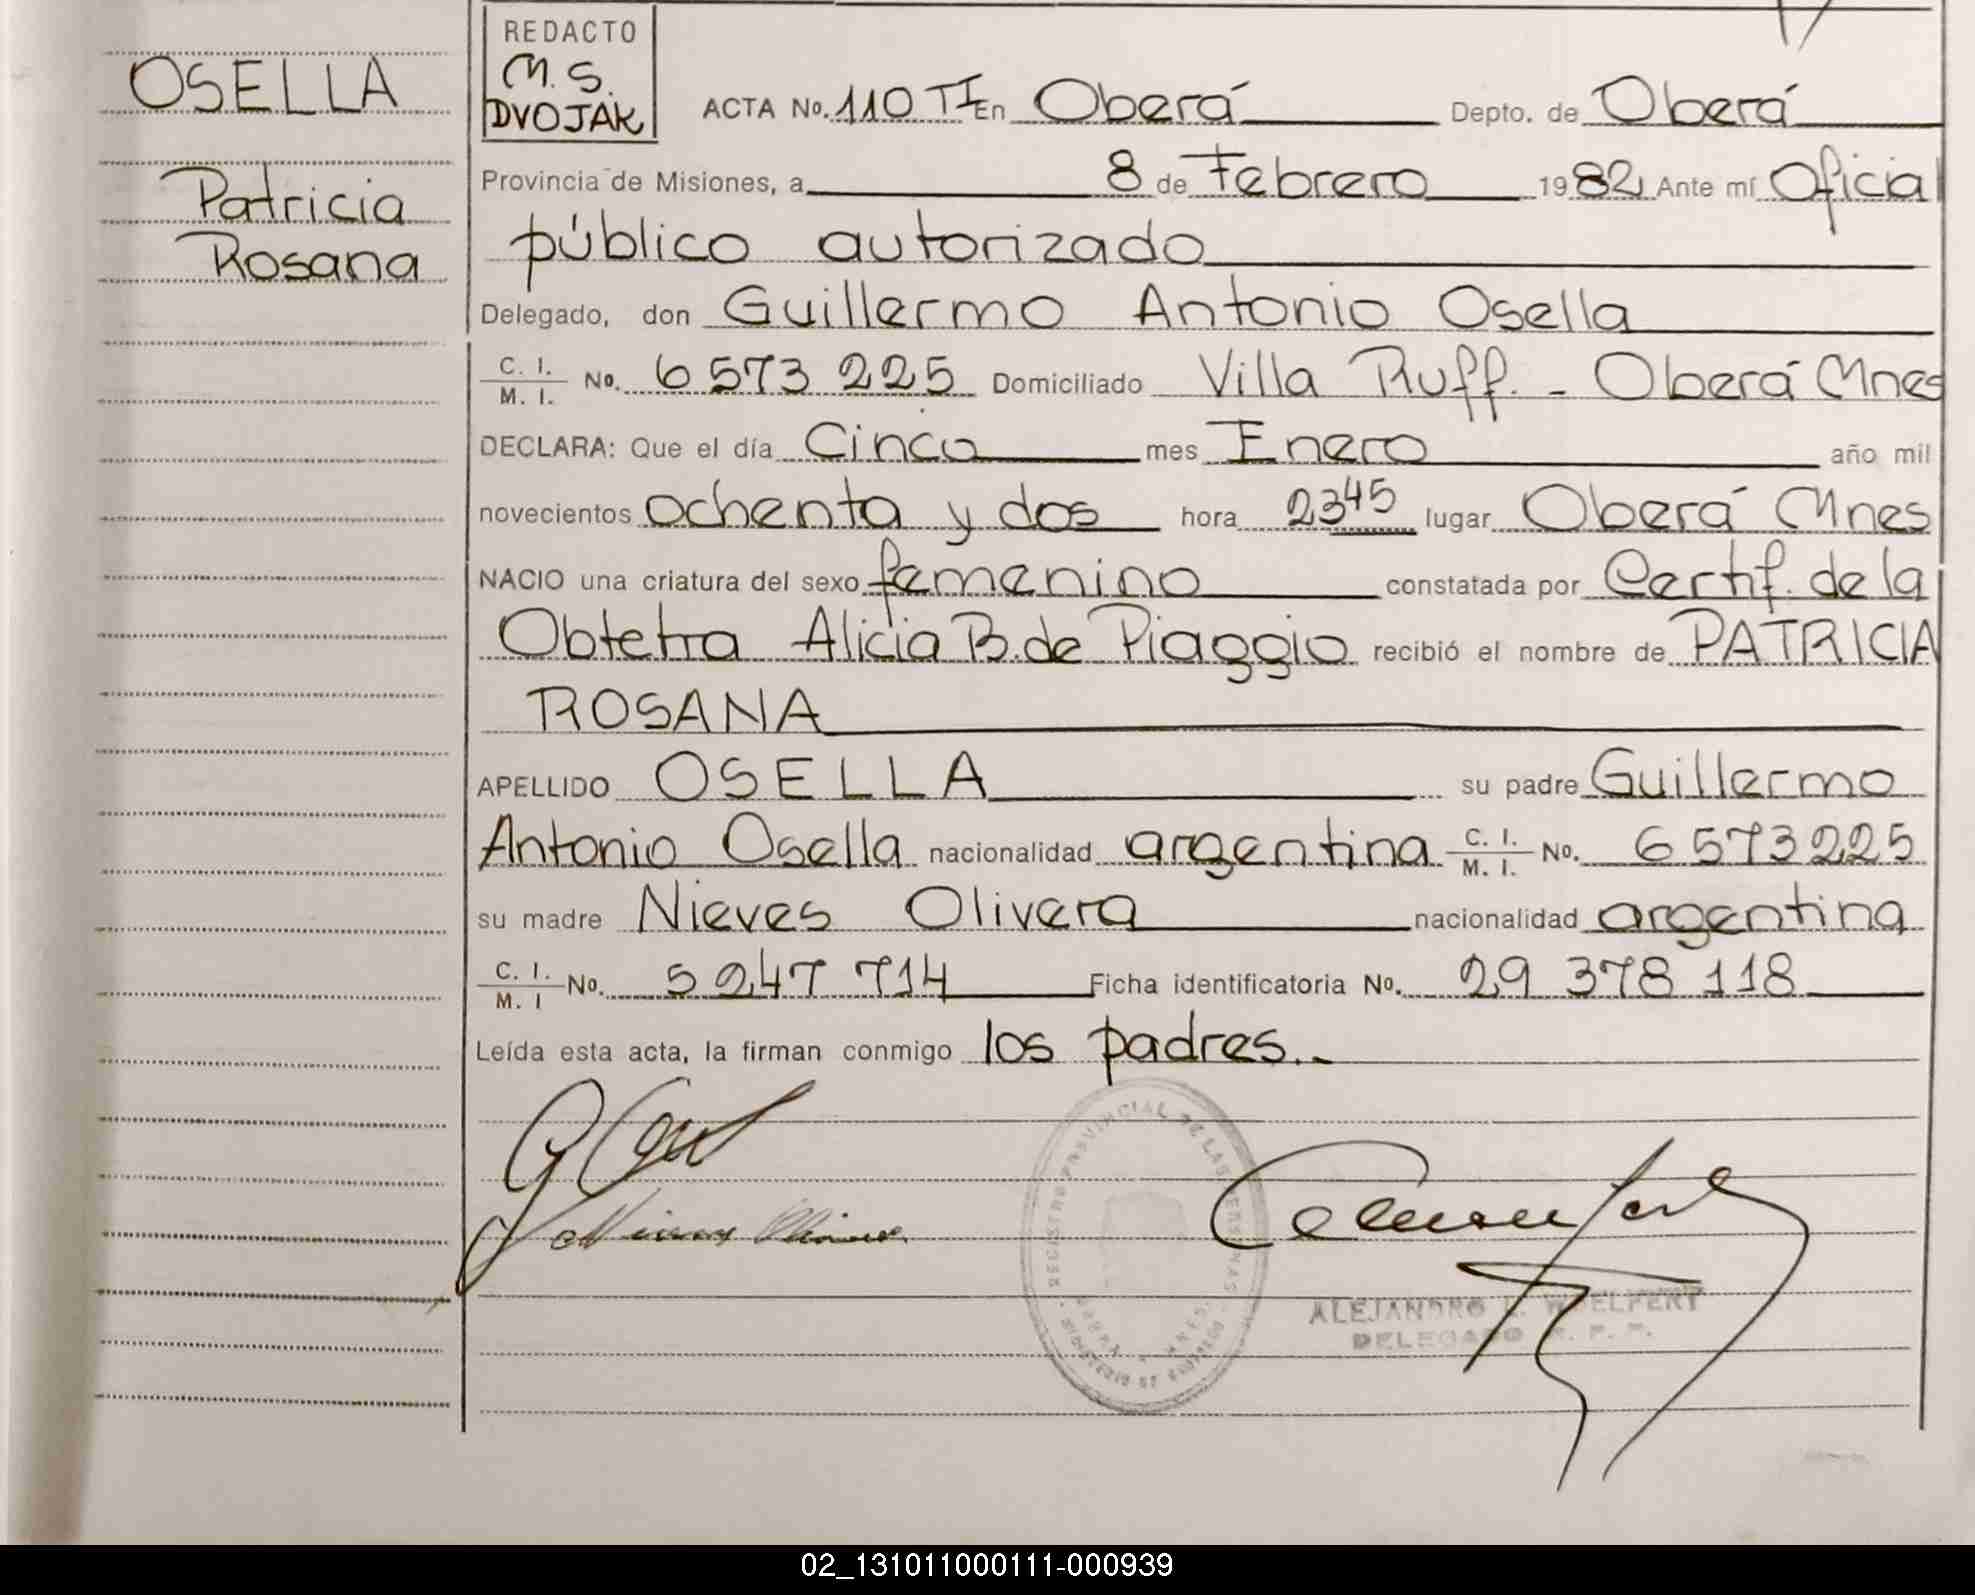 OSELLA
Patricia
Rosana
REDACTO
M. S.
DVOJAK
ACTA No. 110 TI En Oberá Depto. de Oberá
Provincia de Misiones, a 8 de Febrero 1982 Ante mí Oficial
público autorizado
Delegado, don Guillermo Antonio Osella
C. I. M. I. No. 6 573 225 Domiciliado Villa Ruff. - Oberá Mnes
DECLARA: Que el día Cinco mes Enero año mil
novecientos ochenta y dos hora 23 45 lugar Oberá Mnes
NACIO una criatura del sexo femenino constatada por Certif. de la
Obtetra Alicia B. de Piaggio recibió el nombre de PATRICIA
ROSANA
APELLIDO OSELLA su padre Guillermo
Antonio Osella nacionalidad argentina C. I. M. I. No. 6 573 225
su madre Nieves Olivera nacionalidad argentina
C. I. M. I No. 5 247 714 Ficha identificatoria No. 29 378 118
Leída esta acta, la firman conmigo los padres.-
REGISTRO PROVINCIAL DE LAS PERSONAS
MINISTERIO DE GOBIERNO
ALEJANDRO L. WOELFERT
DELEGADO R. P. P.
02_131011000111-000939